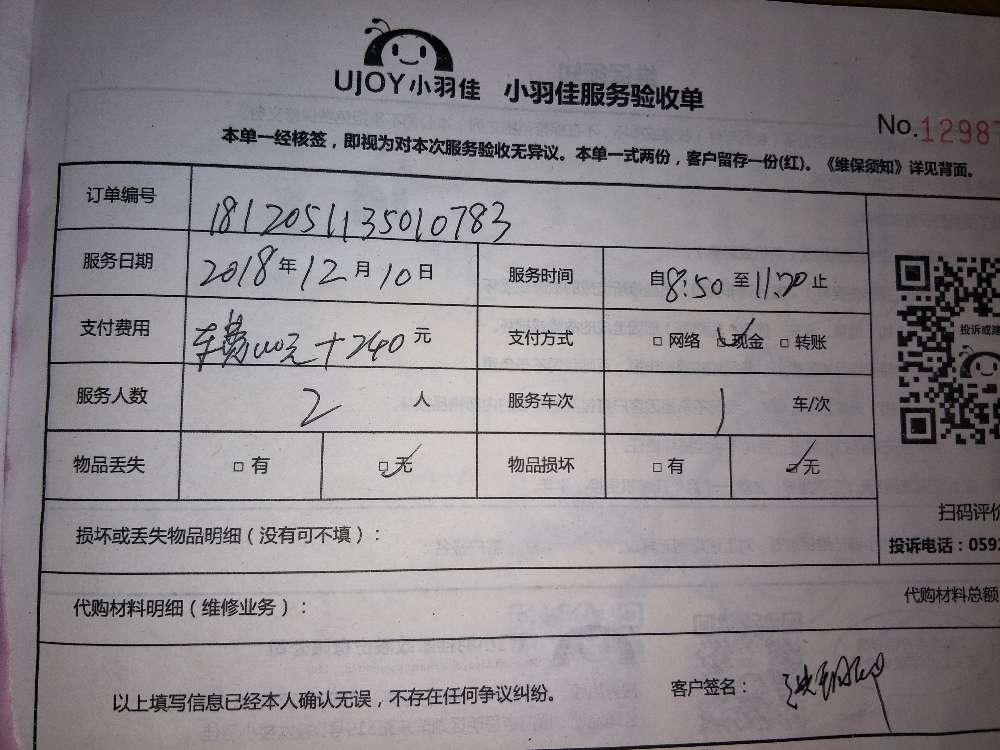 UJOY小羽佳 小羽佳服务验收单
No.1298
本单一经核签，即视为对本次服务验收无异议。本单一式两份，客户留存一份(红)。《维保须知》详见背面。
订单编号 1812051135010783
服务日期 2018年12月10日 服务时间 自8:50至11:20止
支付费用 车费100元+240元 支付方式 □网络 ☑现金 □转账
服务人数 2人 服务车次 1 车/次
物品丢失 □有 ☑无 物品损坏 □有 ☑无
投诉或建
扫码评价
投诉电话：059
损坏或丢失物品明细（没有可不填）：
代购材料明细（维修业务）： 代购材料总额
以上填写信息已经本人确认无误，不存在任何争议纠纷。 客户签名：